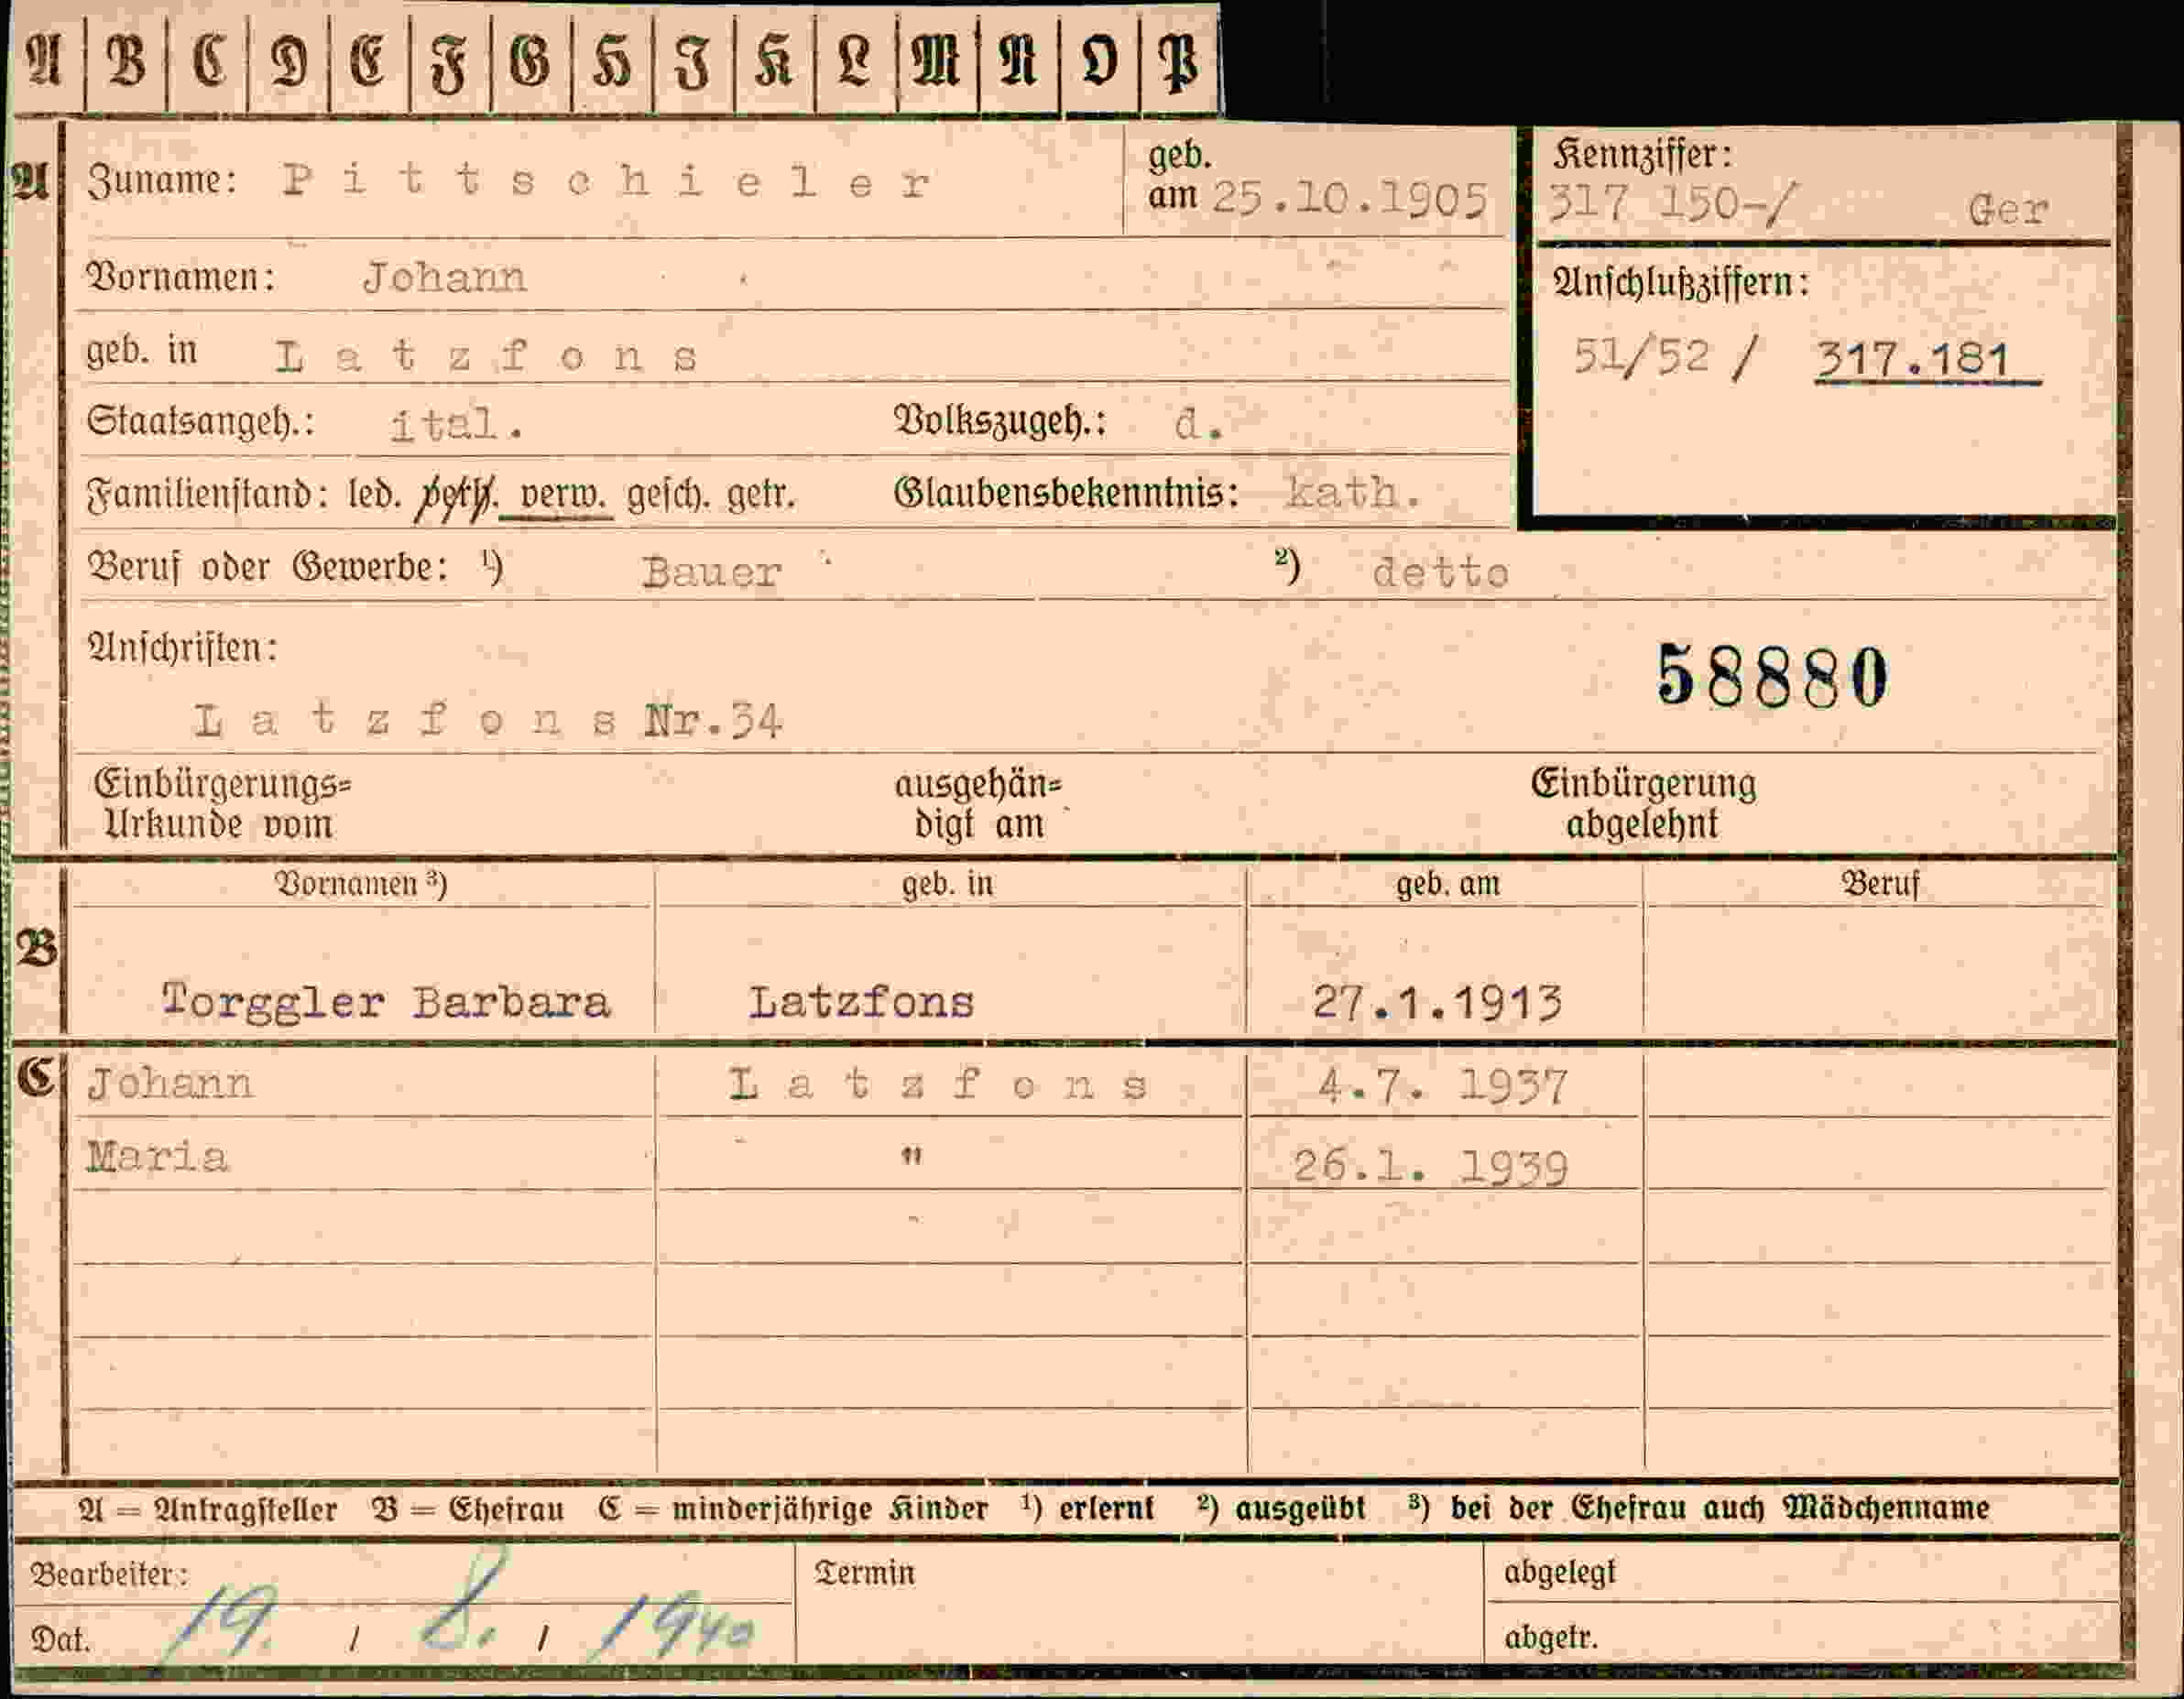 A B C D E F G H I K L M N O P
A Zuname: Pittschieler geb. am 25.10.1905 Kennziffer: 317 150-/ Ger
Vornamen: Johann Anschlußziffern:
geb. in Latzfons 51/52 / 317.181
Staatsangeh.: ital. Volkszugeh.: d.
Familienstand: led. verh. verw. gesch. getr. Glaubensbekenntnis: kath.
Beruf oder Gewerbe: ¹) Bauer ²) detto
Anschriften: 58880
Latzfons Nr.34
Einbürgerungs= ausgehän= Einbürgerung
Urkunde vom digt am abgelehnt
Vornamen ³) geb. in geb. am Beruf
B
Torggler Barbara Latzfons 27.1.1913
C Johann Latzfons 4.7. 1937
Maria " 26.1. 1939
A = Antragsteller B = Ehefrau C = minderjährige Kinder ¹) erlernt ²) ausgeübt ³) bei der Ehefrau auch Mädchenname
Bearbeiter: Termin abgelegt
Dat. 19. / 8. / 1940 abgetr.